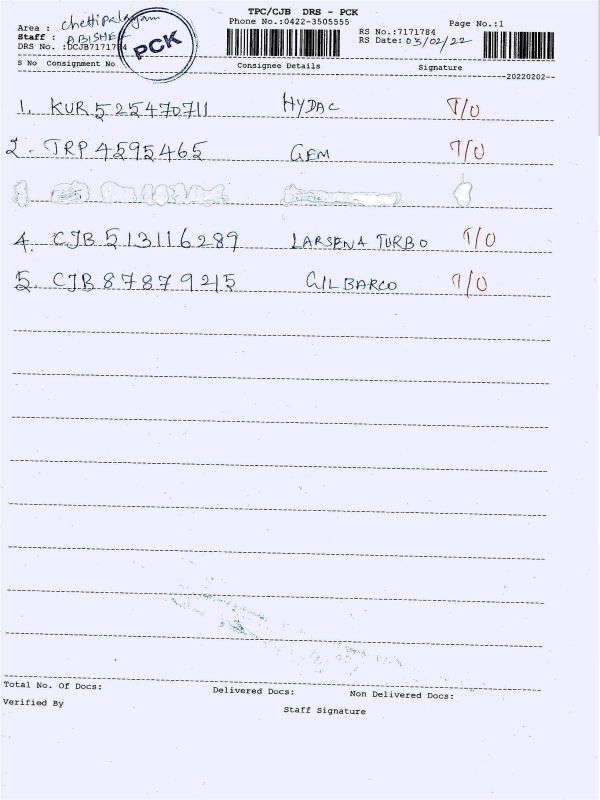 TPC/CJB DRS - PCK
Area : Chettipalayam
Phone No.:0422-3505555
Page No.:1
Staff : ABISHEK
PCK
RS No.:7171784
DRS No. :DCJB7171784
RS Date: 03/02/22
S No Consignment No Consignee Details Signature
20220202
1. KUR 525470711 HYDAC T/O
2. TRP 4595465 GEM T/O
4. CJB 513116289 LARSEN & TURBO T/O
5. CJB 87879215 GILBARCO T/O
Total No. Of Docs: Delivered Docs: Non Delivered Docs:
Verified By Staff Signature